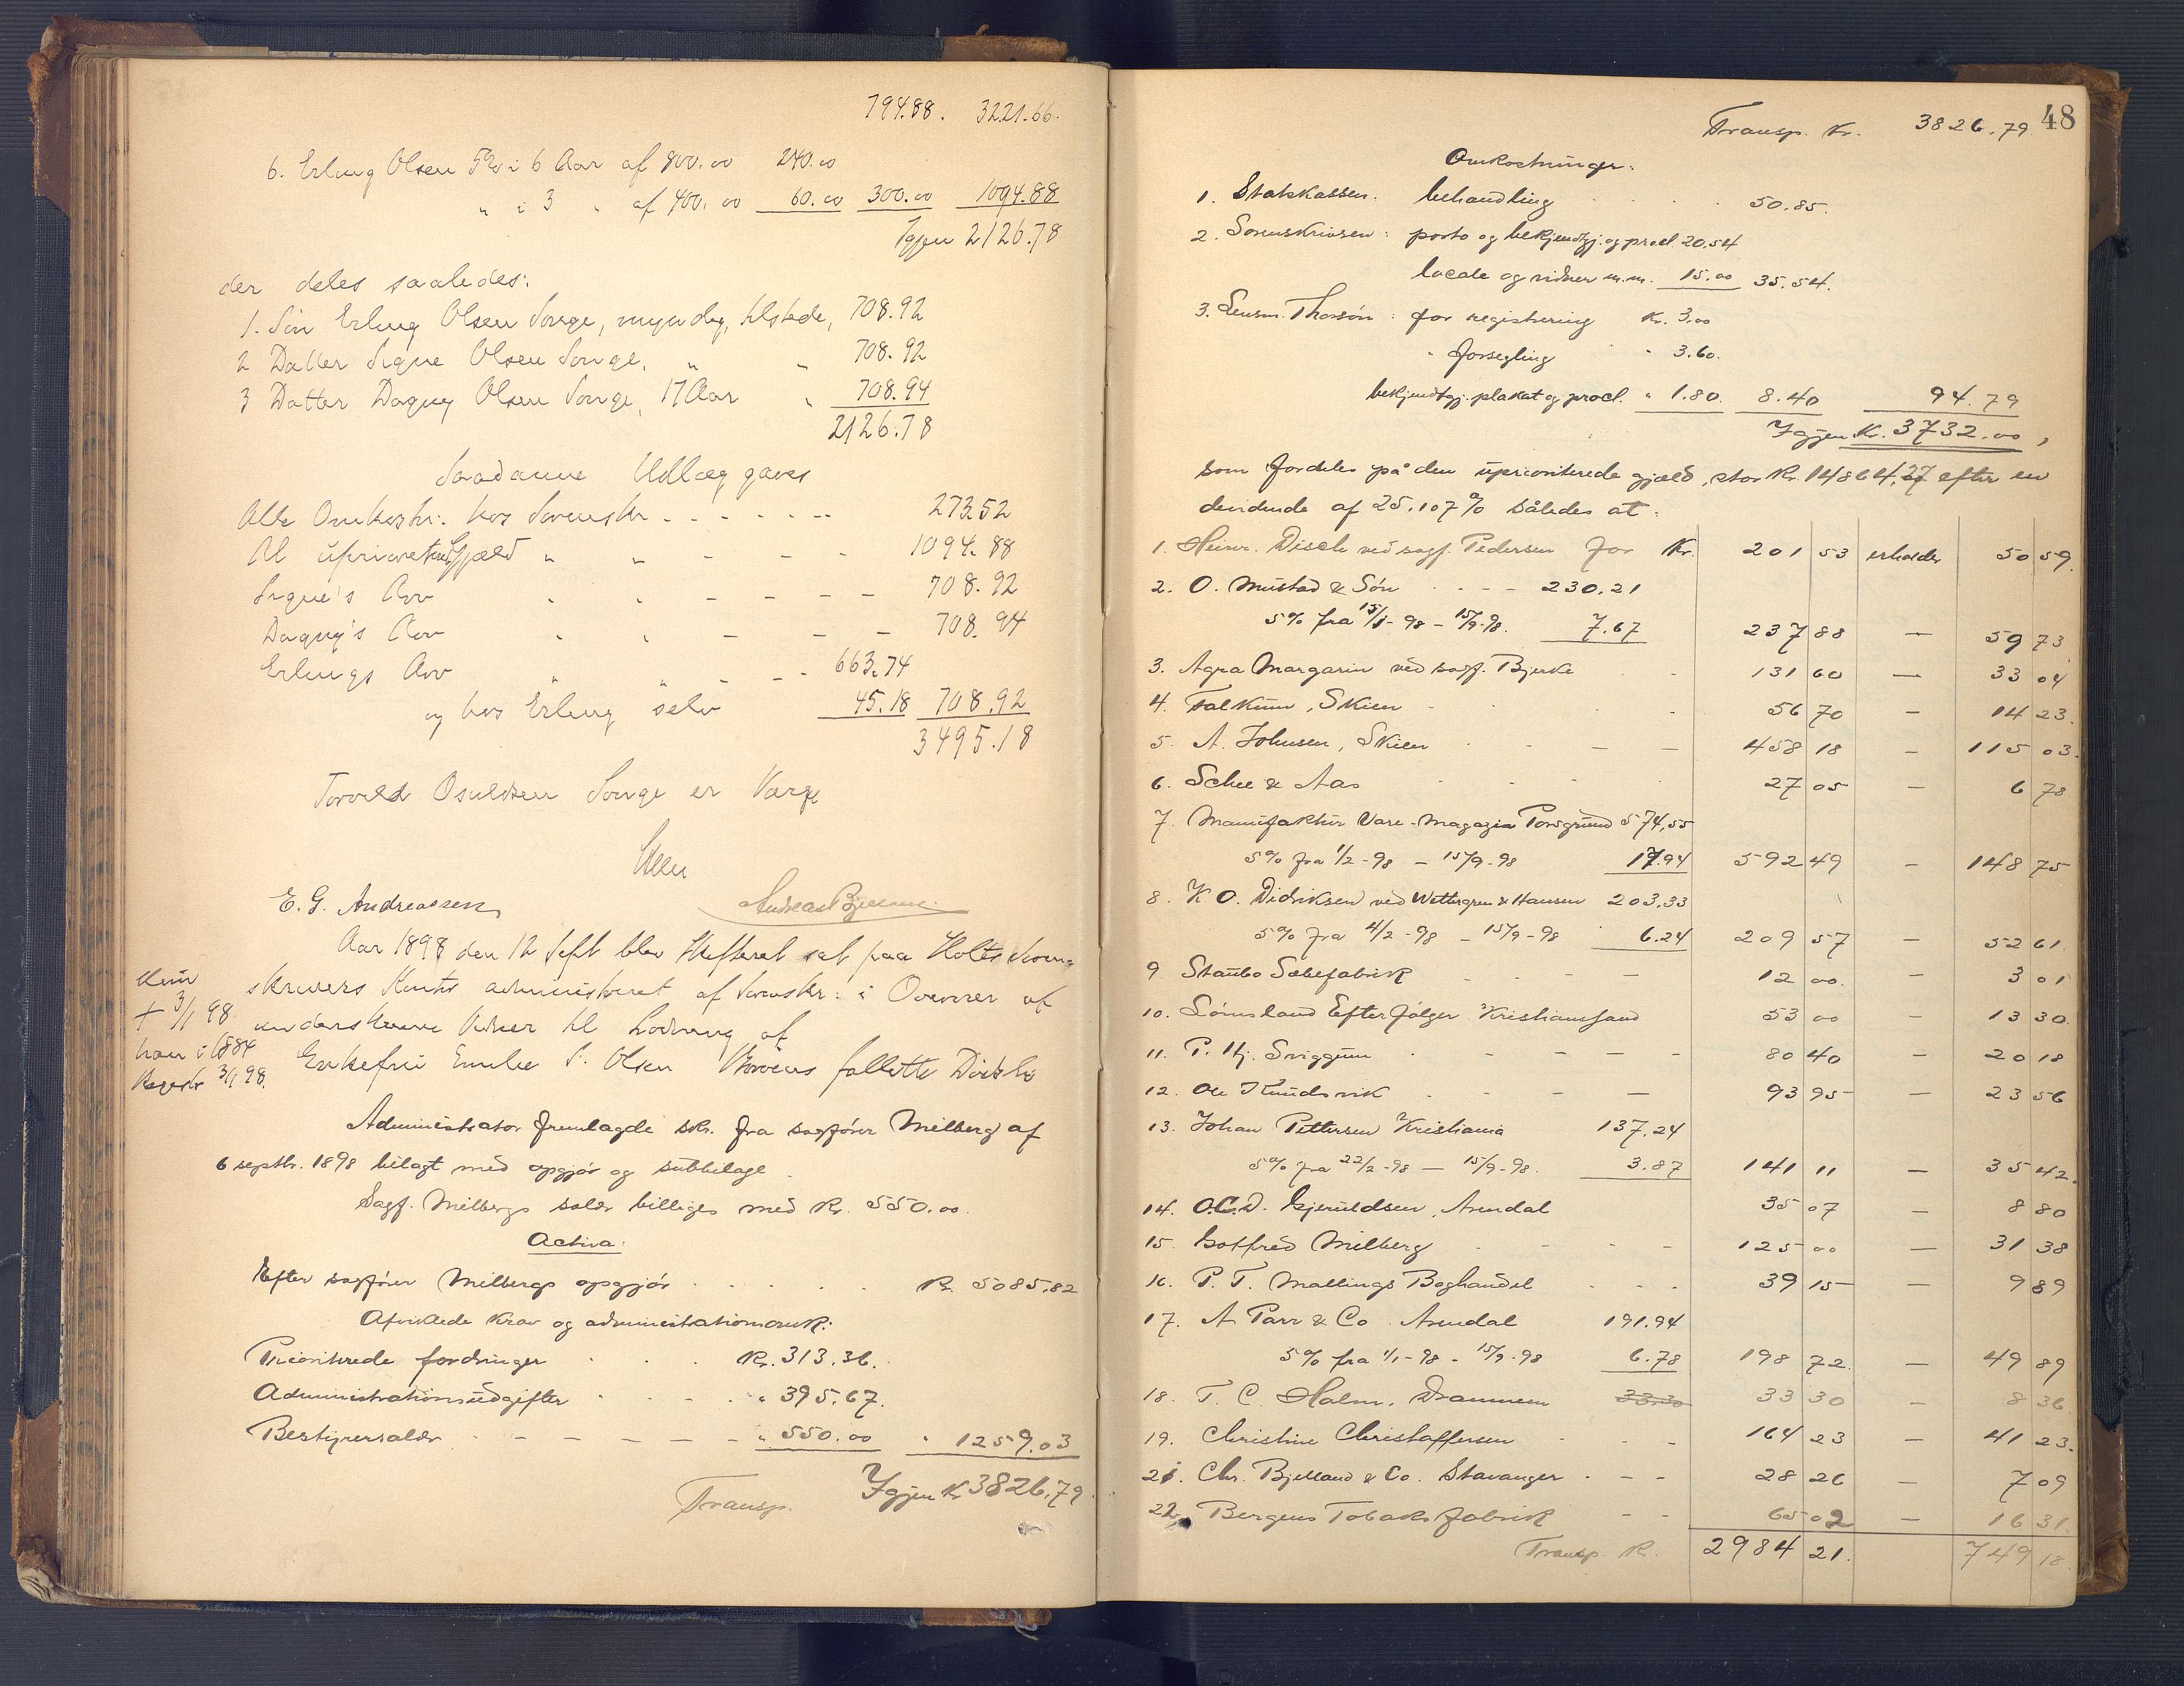 794.88. 3221.66.
6. Erling Olsen 5% i 6 Aar af 800.00 240.00
" i 3 " af 400.00 60.00 300.00 1094.88
Igjen 2126.78
der deles saaledes:
1. Søn Erling Olsen Songe, myndig, tilstede, 708.92
2 Datter Signe Olsen Songe, " " 708.92
3 Datter Dagny Olsen Songe, 17 Aar " 708.94
2126.78
Saadanne Udlæg gaves
Alle Omkostn: hos Sorenskr. - - - - - - - 273.52
Al uprioriteret Gjæld " " - - - 1094.88
Signe's Arv " " - - - - 708.92
Dagny's Arv " " - - - 708.94
Erlings Arv " " - - 663.74
og hos Erling selv 45.18 708.92
3495.18
Torvald Osuldsen Songe er Værge
E. G. Andreasen Andreas
Aar 1898 den 12 Sept blev Skifteret sat paa Holts Soren-
skrivers Kontor administreret af Sorenskr: i Overvær af
underskrevne Vidner til Slutning af
Enkefru Emilie S. Olsen fallitte Dødsbo
Hun
† 3/1 98
han i 1884
Registr 3/1 98.
Administrator fremlagde skr. fra sagfører Milberg af
6 septbr. 1898 bilagt med opgjør og subbilage.
Sagf. Milbergs salær billiges med Kr. 550.00.
Activa:
Efter sagfører Milbergs opgjør . . . . Kr. 5085.82
Afviklede krav og administrationsomk:
Prioriterede fordringer . . . Kr. 313.36.
Administrationsudgifter . . . " 395.67.
Bestyrersalær - - - - - " 550.00 " 1259.03
Transp. Igjen Kr 3826.79
48
Transp. Kr. 3826.79
Omkostninger.
1. Statskassen: behandling . . . . 50.85.
2. Sorenskriveren: porto og bekjendtgj. og procl. 20.54
locale og vidner m.m. 15.00 35.54.
3. Lensm. Thorsøn: for registrering Kr. 3.00
" forsegling " 3.60.
bekjendtgj. plakat og procl. " 1.80. 8.40 94.79
Igjen Kr. 3732.00,
som fordeles på den uprioriterede gjæld, stor Kr. 14864,27 efter en
devidende af 25.107% således at:
1. Heinr. Disch ved sagf. Pedersen for Kr. 201 53 erholder 50 59.
2. O. Mustad & Søn - - - 230.21
5% fra 15/1-98 - 15/9-98. 7.67 237 88 — 59 73
3. Agra Margarin ved sagf. Bjerke 131 60 — 33 04
4. Falkum, Skien - - 56 70 — 14 23.
5. A. Johnsen, Skien - - - - 458 18 — 115 03.
6. Schee & Aas 27 05 — 6 78
7. Manufaktur Vare-Magazin Porsgrund 574,55
5% fra 1/2-98 - 15/9-98 17.94 592 49 — 148 75
8. K. O. Didriksen ved Wettergren & Hansen 203.33
5% fra 4/2-98 - 15/9-98 6.24 209 57 — 52 61
9 Staubo Sæbefabrik - - - 12 00. — 3 01
10. Sømsland Efterfølger Kristiansand 53 00 — 13 30
11. P. Hj. Sviggum - - - - 80 40 — 20 18
12. Ole Knudsvik - - - 93 95 — 23 56
13. Johan Pettersen Kristiania 137.24
5% fra 22/2-98 — 15/9-98. 3.87 141 11 — 35 42.
14. O.C.D. Gjeruldsen, Arendal 35 07 — 8 80
15. Gotfred Milberg - - - 125 00 — 31 38
16. P. T. Mallings Boghandel - - - 39 15 — 9 89
17. A Parr & Co. Arendal 191.94
5% fra 1/1-98 - 15/9-98 6.78 198 72. — 49 89
18. T. C. Holm. Drammen 33.30 33 30 — 8 36
19. Christine Christoffersen - - - 164 23 — 41 23.
21. Chr. Bjelland & Co. Stavanger - - - 28 26 — 7 09
22. Bergens Tobaksfabrik - - 65 02 — 16 31
Transp. Kr. 2984 21. 749 18